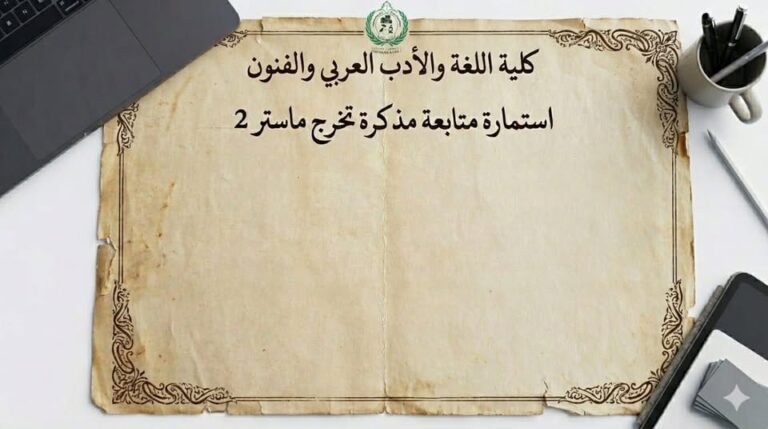 كلية اللغة والأدب العربي والفنون
استمارة متابعة مذكرة تخرج ماستر 2